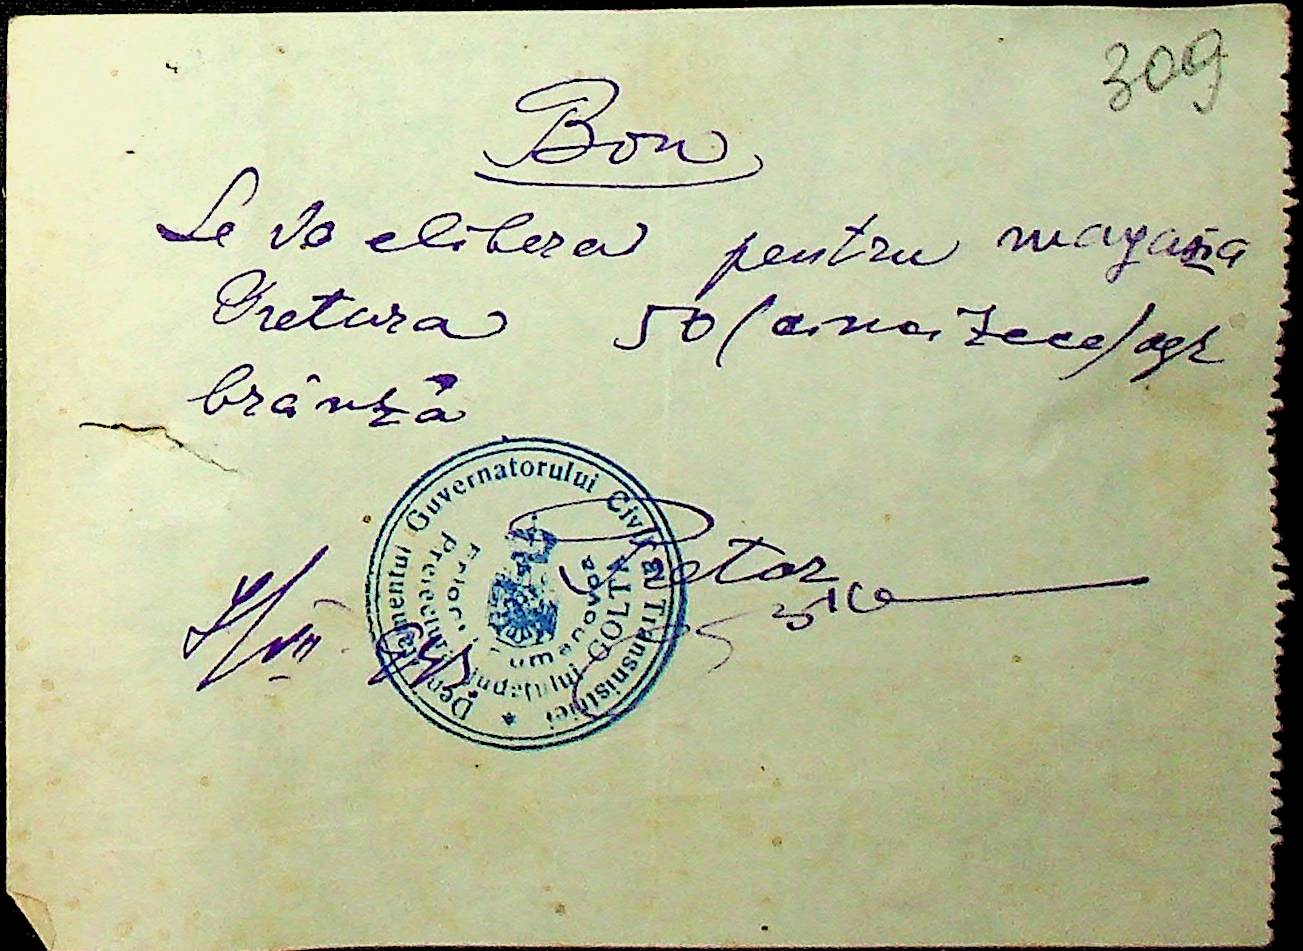 309
Bon
Se va elibera pentru magazia
Pretura 50 (cincizece) kgr
brânză
Pretor
Departamentul Guvernatorului Civil al Transnistriei
Prefectura Județului GOLTA